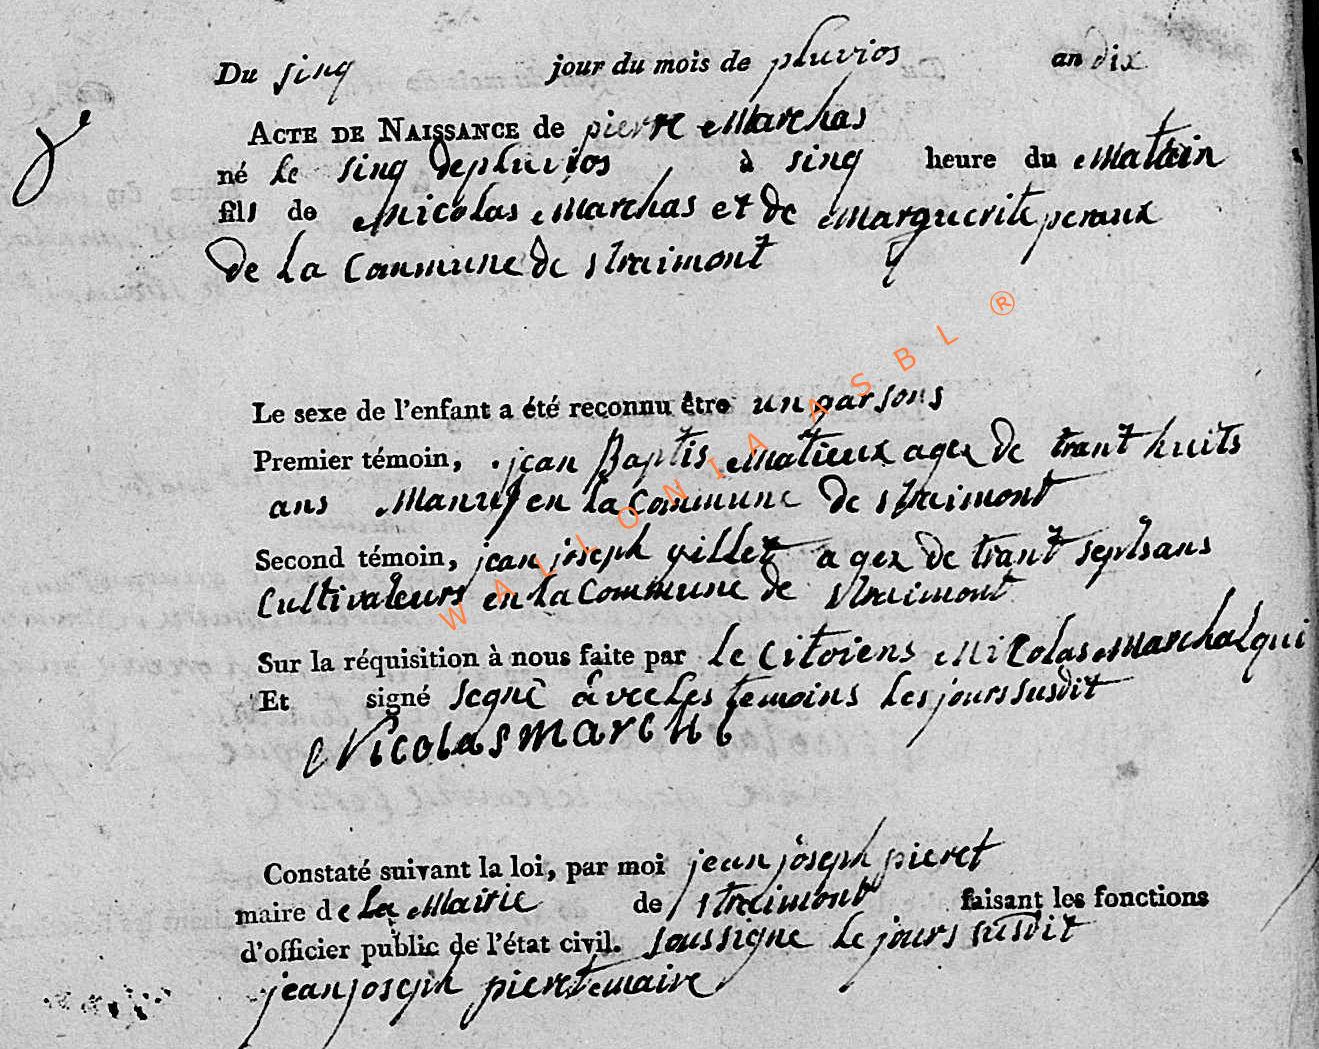 Du sinq jour du mois de pluvios an dix
ACTE DE NAISSANCE de pierre Marchas
né le sinq de pluvios à sinq heure du Matin
fils de Nicolas Marchas et de Marguerite peraux
de la Commune de straimont
Le sexe de l'enfant a été reconnu être un garsons
Premier témoin, jean Baptis Matieux agez de trant huits
ans en la Commune de straimont
Second témoin, jean joseph gillet agez de trant septs ans
Cultivateurs en la Commune de straimont
Sur la réquisition à nous faite par le Citoiens Nicolas Marchal qui
Et signé segné avec les temoins les jours susdit
Nicolas marchl
Constaté suivant la loi, par moi jean joseph pieret
maire de la Mairie de straimont faisant les fonctions
d'officier public de l'état civil. soussigne le jours susdit
jean joseph pieret maire
WALLONIA ASBL ®